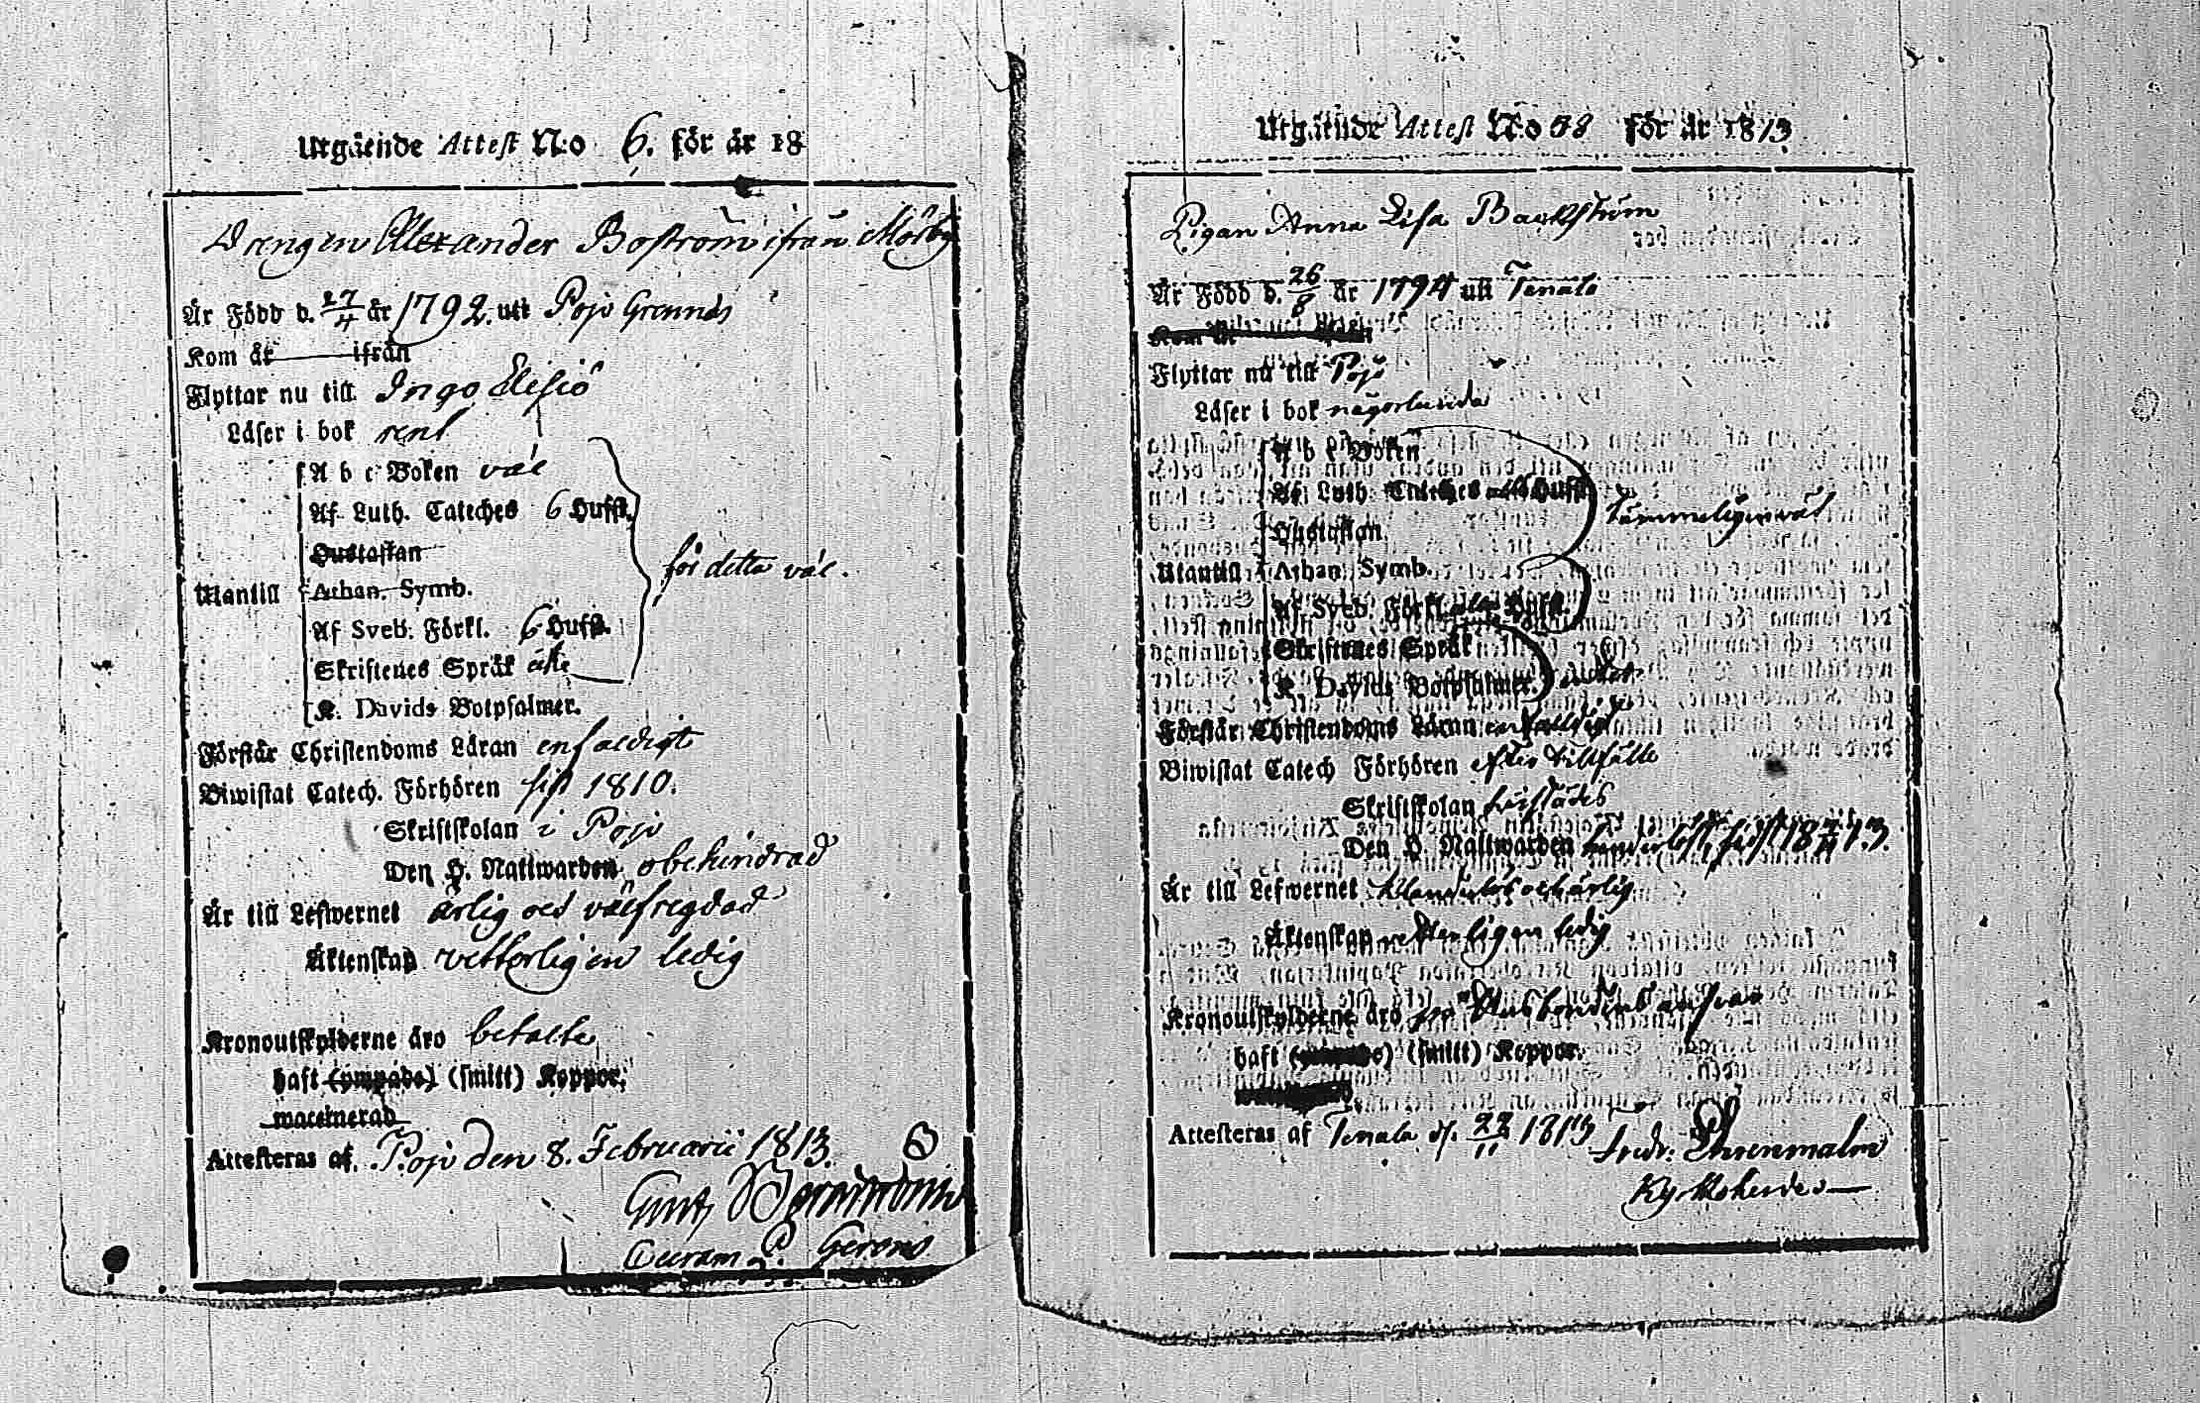 Utgående Attest N:o 6. för år 18
Drengen Alexander Boström ifrån Mörby
Är Född d. 27/4 år 1792. utt Pojo Grennäs
Kom år ifrån
Flyttar nu till Ingo
Läser i bok rent
A b c Boken väl
Af Luth. Cateches 6 Hufst.
Hustaflan
Utantill Athan. Symb.
för detta väl.
Af Sveb. Förkl. 6 Hufst.
Skriftenes Språk
K. Davids Botpsalmer.
Förstår Christendoms Läran enfaldigt
Biwistat Catech. Förhören sist 1810.
Skriftskolan i Pojo
Den H. Nattwarden obehindrad
Är till Lefwernet ärlig och välfregdad
Äktenskap vetterligen ledig
Kronoutskylderne äro betalte
haft (ympade) (smitt) Koppor.
waccinerad
Attesteras af. Pojo den 8. Februarii 1813.
Utgående Attest N:o 58 för år 1813
Pigan Anna Lisa Backström
Är Född d. 26/8 år 1794 utt Tenala
Kom år
Flyttar nu till Pojo
Läser i bok någorlunda
A b c Boken
Af Luth. Cateches alla Hufst.
tämmeligen väl
Hustaflan
Utantill Athan. Symb.
Af Sveb. Förkl. alla Hufst.
Skriftenes Språk
K. Davids Botpsalmer.
Förstår Christendoms Läran enfaldigt
Biwistat Catech Förhören efter tillfälle
Skriftskolan härstädes
Den H. Nattwarden sidst 1813.
Är till Lefwernet och ärlig
Äktenskap vetterligen ledig
Kronoutskylderne äro på Husbondens ansvar
haft (smitt) Koppor.
Attesteras af Tenala d. 22/11 1813 Fredr: Ehrenmalm
Kyrkoherde